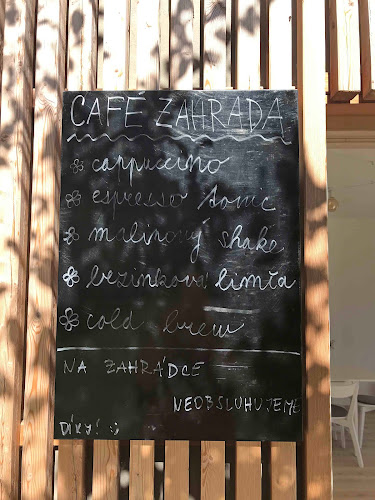 CAFÉ ZAHRADA
cappuccino
espresso tonic
malinový shake
bezinková limča
cold brew
NA ZAHRÁDCE
NEOBSLUHUJEME
DÍKY! :)